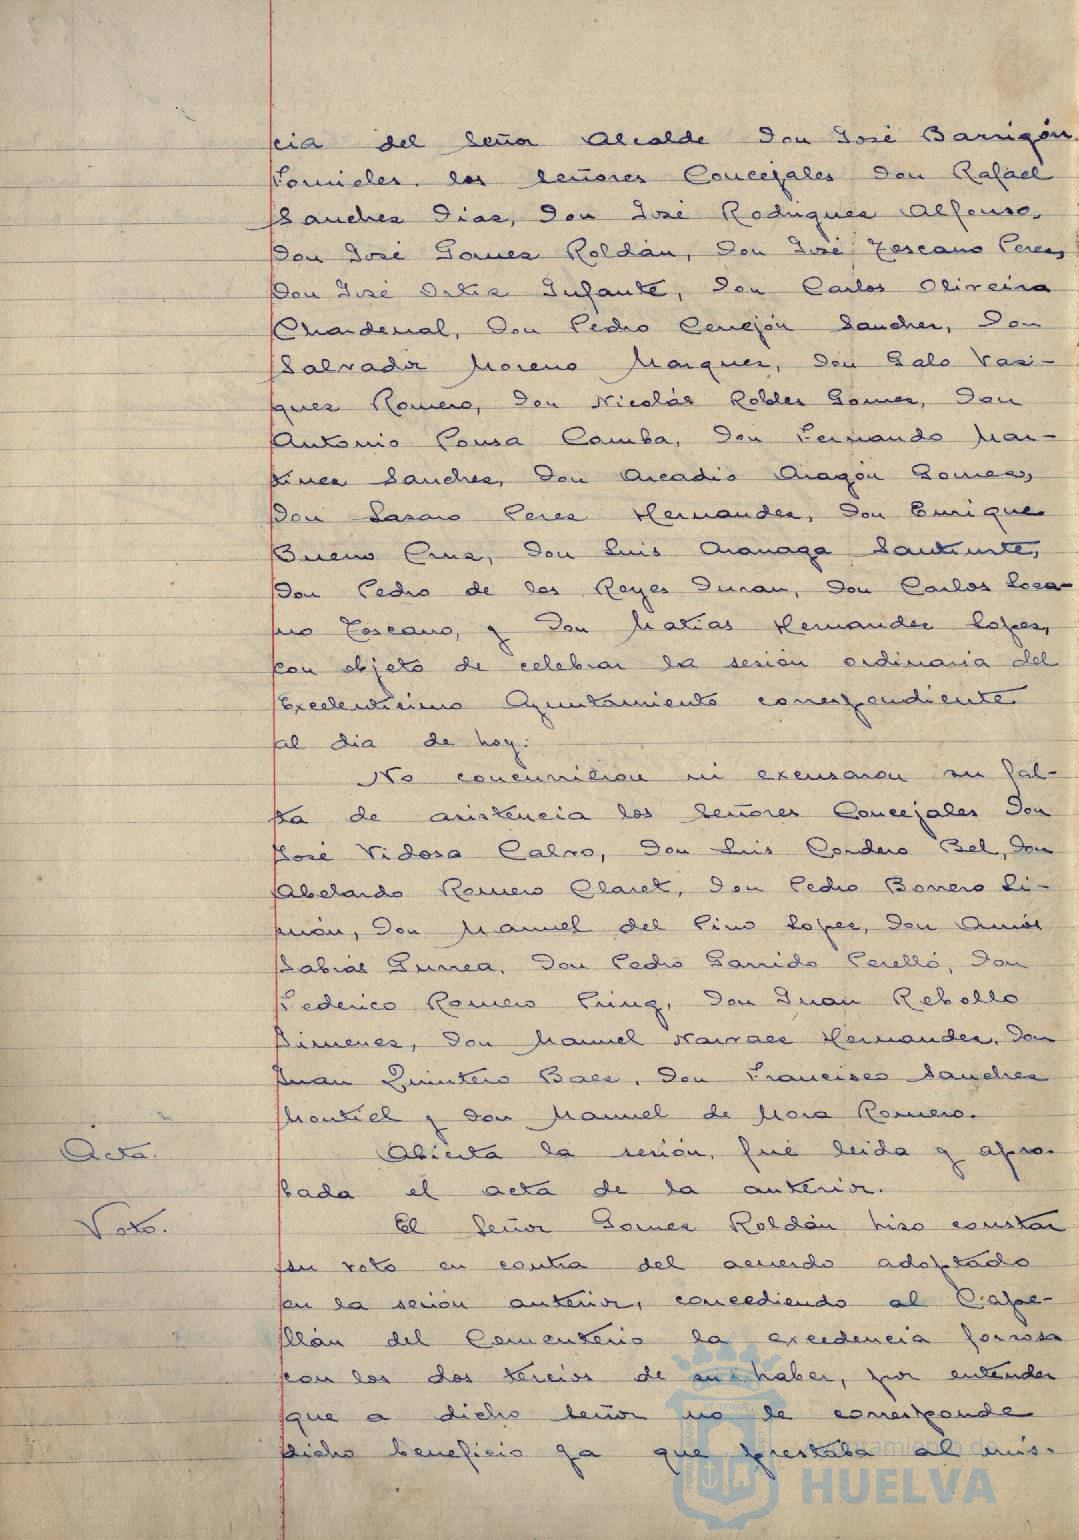 cia del Señor Alcalde Don José Barrigón
Fornieles, los Señores Concejales Don Rafael
Sanchez Diaz, Don José Rodriguez Alfonso,
Don José Gomez Roldán, Don José Toscano Perez,
Don José Ortiz Infante, Don Carlos Oliveira
Chardenal, Don Pedro Cerrejón Sanchez, Don
Salvador Moreno Marquez, Don Galo Vaz-
quez Romero, Don Nicolás Robles Gomez, Don
Antonio Pousa Camba, Don Fernando Mar-
tinez Sanchez, Don Arcadio Aragón Gomez,
Don Lazaro Perez Hernandez, Don Enrique
Bueno Cruz, Don Luis Aranaga
Don Pedro de los Reyes Duran, Don Carlos Loza-
no Toscano, y Don Matías Hernandez Lopez,
con objeto de celebrar la sesión ordinaria del
Excelentisimo Ayuntamiento correspondiente
al dia de hoy.
No concurrieron ni excusaron su fal-
ta de asistencia los Señores Concejales Don
José Vidosa Calvo, Don Luis Cordero Bel, Don
Abelardo Romero Claret, Don Pedro Borrero Li-
món, Don Manuel del Pino Lopez, Don Amós
Sabrás Gurrea, Don Pedro Garrido Perelló, Don
Federico Romero Don Juan Rebollo
Jimenez, Don Manuel Narvaez Hernandez, Don
Juan Quintero Baez, Don Francisco Sanchez
Montiel y Don Manuel de Mora Romero.
Acta.
Abierta la sesión, fué leida y apro-
bada el acta de la anterior.
Voto.
El Señor Gomez Roldán hizo constar
su voto en contra del acuerdo adoptado
en la sesión anterior, concediendo al Cape-
llán del Cementerio la excedencia forzosa
con los dos tercios de su haber, por entender
que a dicho Señor no le corresponde
dicho beneficio ya que prestaba al mis-
Ayuntamiento de
HUELVA